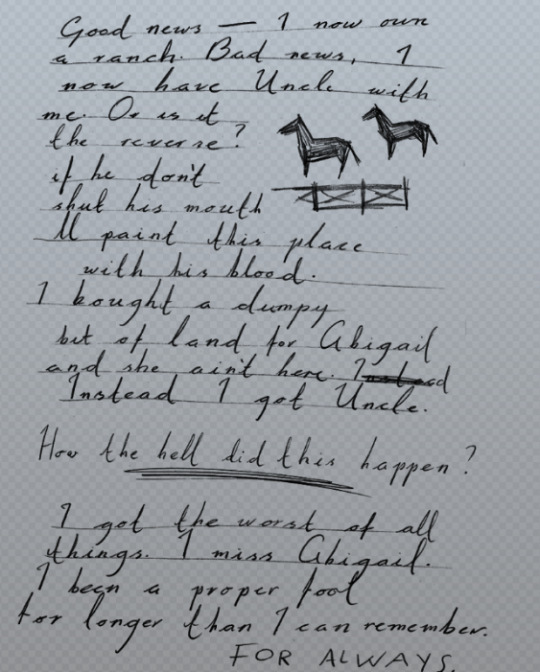 Good news — I now own
a ranch. Bad news, I
now have Uncle with
me. Or is it
the reverse?
if he don't
shut his mouth
Ill paint this place
with his blood.
I bought a dumpy
bit of land for Abigail
and she ain't here. Instead
Instead I got Uncle.
How the hell did this happen?
I got the worst of all
things. I miss Abigail.
I been a proper fool
for longer than I can remember.
FOR ALWAYS.